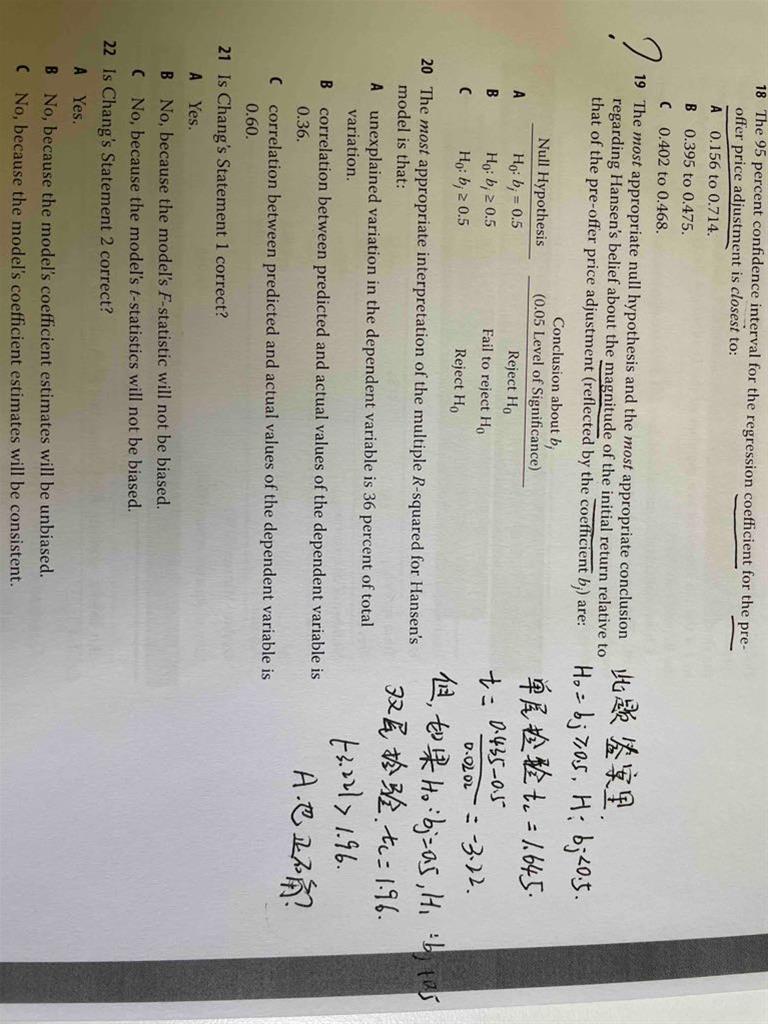 18 The 95 percent confidence interval for the regression coefficient for the pre-
offer price adjustment is closest to:
A 0.156 to 0.714.
B 0.395 to 0.475.
C 0.402 to 0.468.
?
19 The most appropriate null hypothesis and the most appropriate conclusion
regarding Hansen's belief about the magnitude of the initial return relative to
that of the pre-offer price adjustment (reflected by the coefficient bj) are:
Conclusion about bj
Null Hypothesis (0.05 Level of Significance)
A H0: bj = 0.5 Reject H0
B H0: bj ≥ 0.5 Fail to reject H0
C H0: bj ≥ 0.5 Reject H0
20 The most appropriate interpretation of the multiple R-squared for Hansen's
model is that:
A unexplained variation in the dependent variable is 36 percent of total
variation.
B correlation between predicted and actual values of the dependent variable is
0.36.
C correlation between predicted and actual values of the dependent variable is
0.60.
21 Is Chang's Statement 1 correct?
A Yes.
B No, because the model's F-statistic will not be biased.
C No, because the model's t-statistics will not be biased.
22 Is Chang's Statement 2 correct?
A Yes.
B No, because the model's coefficient estimates will be unbiased.
C No, because the model's coefficient estimates will be consistent.
此题答案用.
H0 = bj ≥ 0.5, H: bj<0.5.
单尾检验 tc = 1.645.
t = 0.435-0.5 / 0.0202 = -3.22.
但, 如果 H0: bj=0.5, H1: bj≠0.5
双尾检验. tc = 1.96.
|-3.22| > 1.96.
A.也正确?